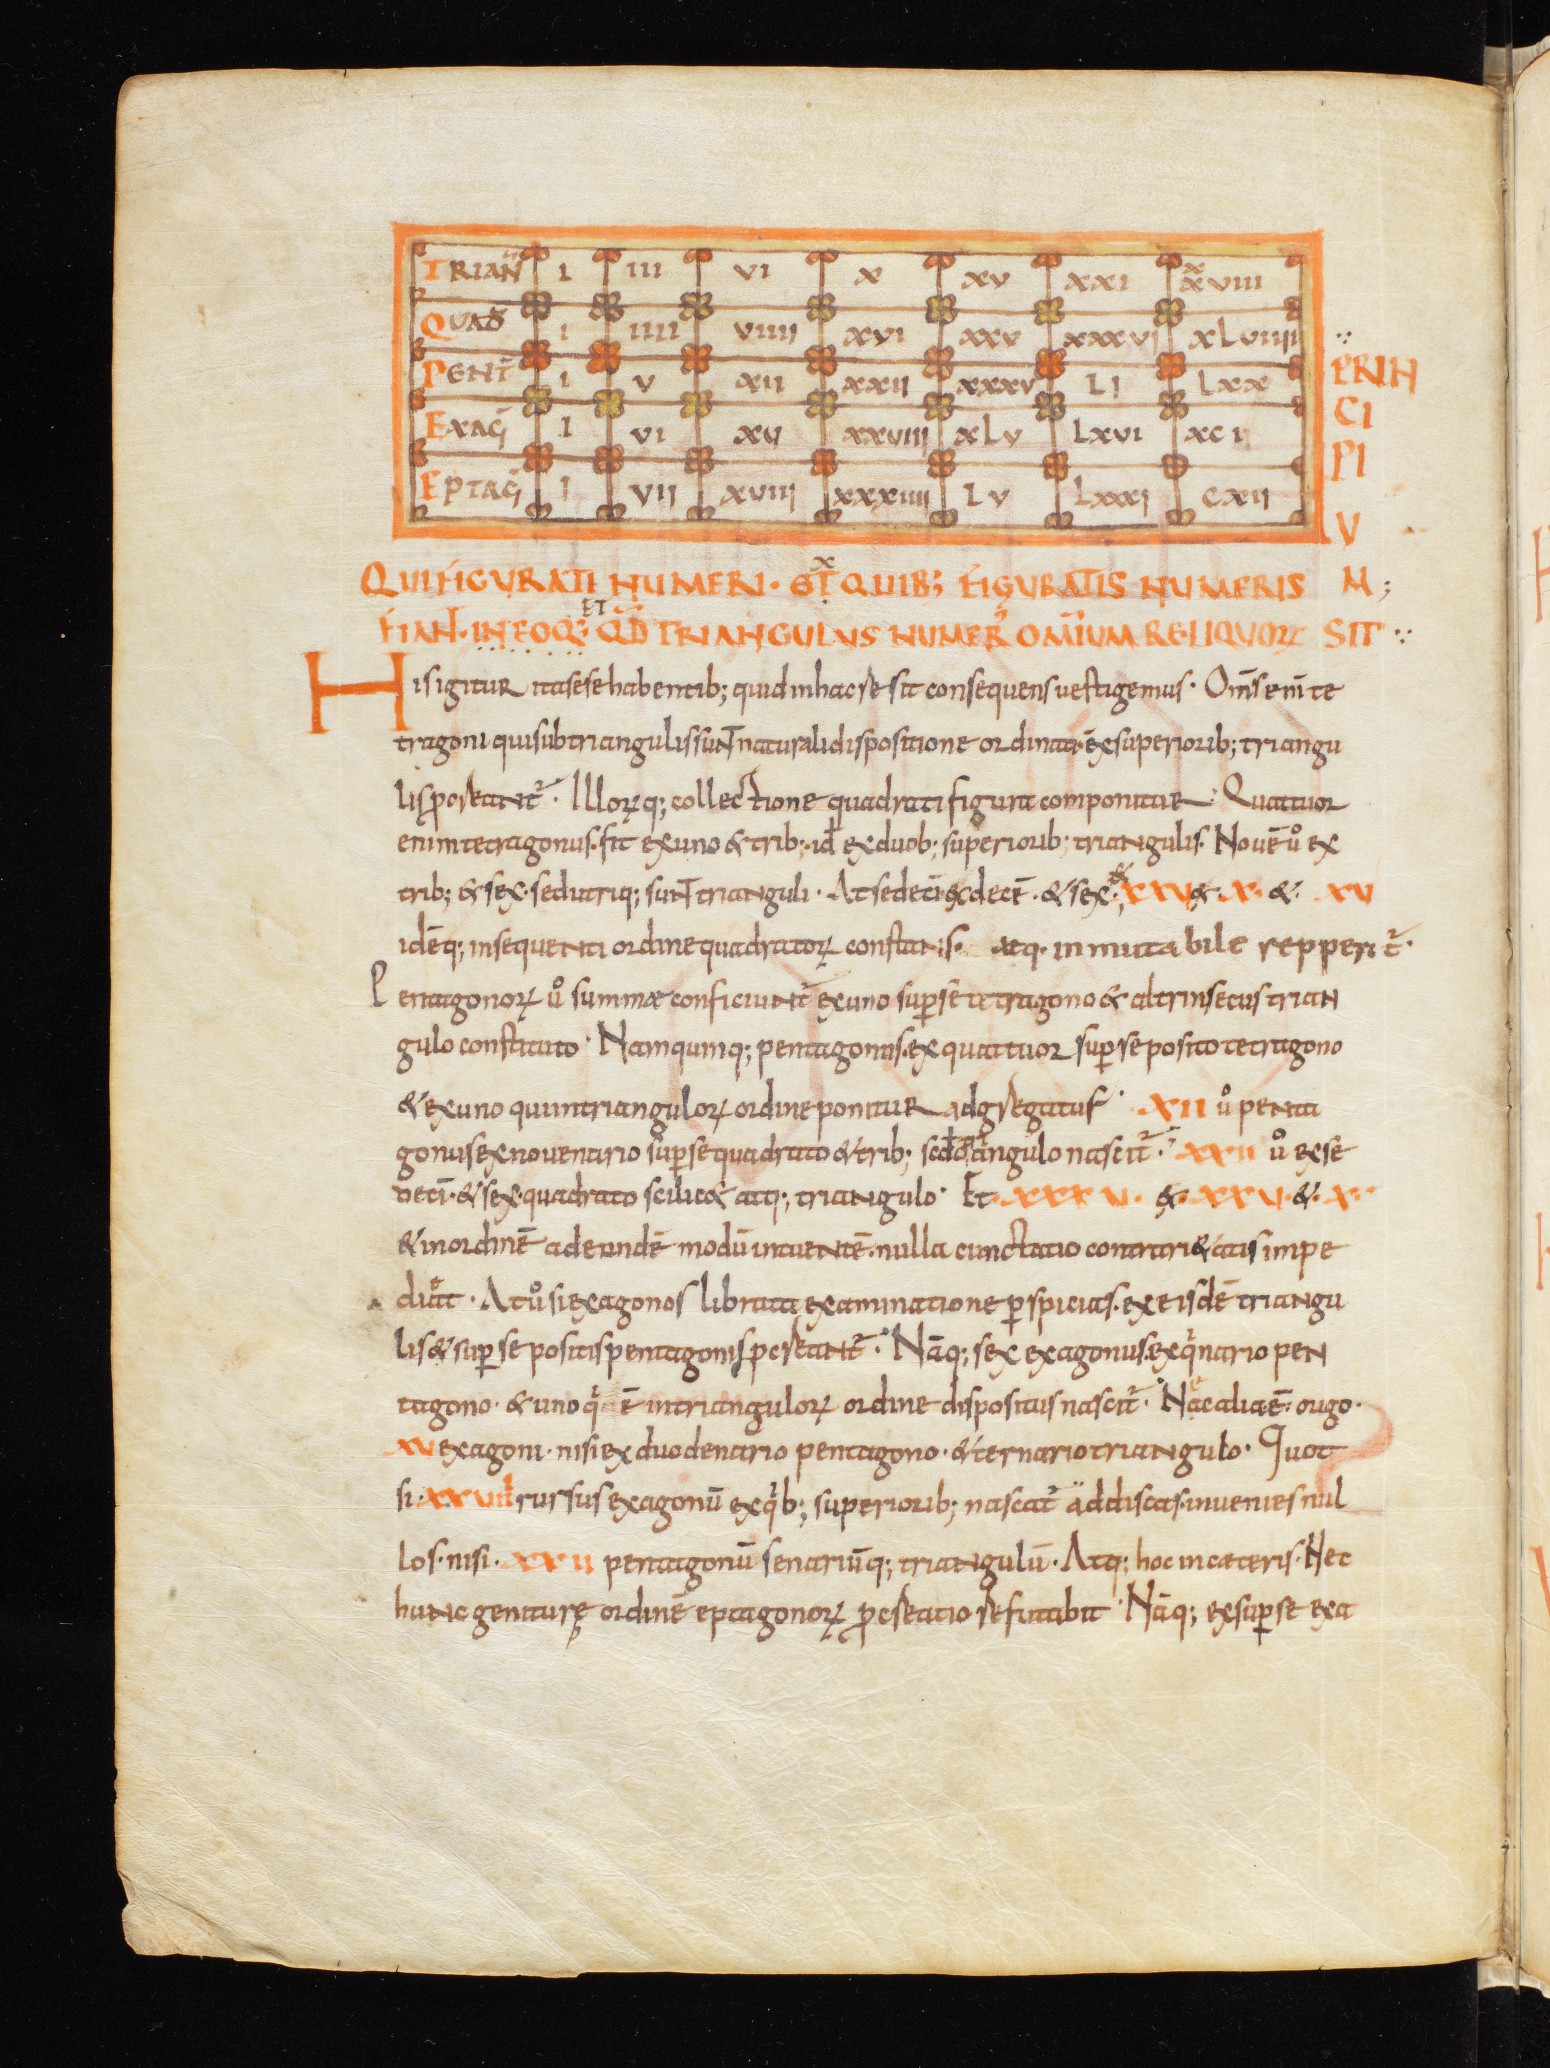 TRIAÑ I III VI X XV XXI XXVIII
QUAD̄ I IIII VIIII XVI XXV XXXVI XLVIIII
PENT̄ I V XII XXII XXXV LI LXX
EXAḠ I VI XV XXVIII XLV LXVI XCI
EPTAḠ I VII XVIII XXXIIII LV LXXXI CXII
QUI FIGURATI NUMERI· EX QUIB; FIGURATIS NUMERIS
FIANT· IN EOQ; ET QD̄ TRIANGULUS NUMER̄ OMIUM RELIQUORꝜ
PRIN
CI
PI
U
M;
SIT
His igitur ita sese habentib; quid in hac re sit consequens uestigemus· Om̄s eni te
tragoni qui sub triangulis sunt naturali dispositione ordinati ex superiorib; triangu
lis procreant̄· Illorꝝq; collectione quadrati figura componitur· Quattuor
enim tetragonus· fit ex uno & trib;· id ex duob; superiorib; triangulis· Nouē ů ex
trib; & sex· sed utriq; sunt trianguli· At sedecī ex decē· & sex· XXV ex· X· & XV
idēq; in sequenti ordine quadratorꝝ constans· atq· inmutabile repperit̄·
Pentagonorꝝ ů summæ conficiunt̄ ex uno sup̄ se tetragono & altrinsecus trian
gulo constituto· Nam quinq; pentagonus· ex quattuor sup̄ se posito tetragono
& ex uno qui in triangulorꝝ ordine ponitur adgregatus· XII ů penta
gonus ex nouenario sup̄ se quadrato & trib; sedo triangulo nascit̄· XXII ů ex se
decī· & sex· quadrato scilic& atq; triangulo· Et· XXXV· ex· XXV· & X·
& in ordinē ad eundē modū intuentē· nulla cunctatio contrari&atis impe
diat· At ů si exagonos librata examinatione p̄spicias· ex eisdē triangu
lis & sup̄ se positis pentagonis procreant̄· Nāq; sex exagonus· ex qinario pen
tagono· & uno qi ē in triangulorꝝ ordine dispositus nascit̄· Nec alia ē· origo·
XV exagoni· nisi ex duodenario pentagono· & ternario triangulo· Quot
si· XXVIII rursus exagonū ex qib; superiorib; nascat̄ addiscas· inuenies nul
los· nisi· XXII pentagonū senariūq; triangulū· Atq; hoc in cæteris· Nec
hunc geniturę ordinē eptagonorꝝ procreatio refutabit· Nāq; ex sup̄ se exa